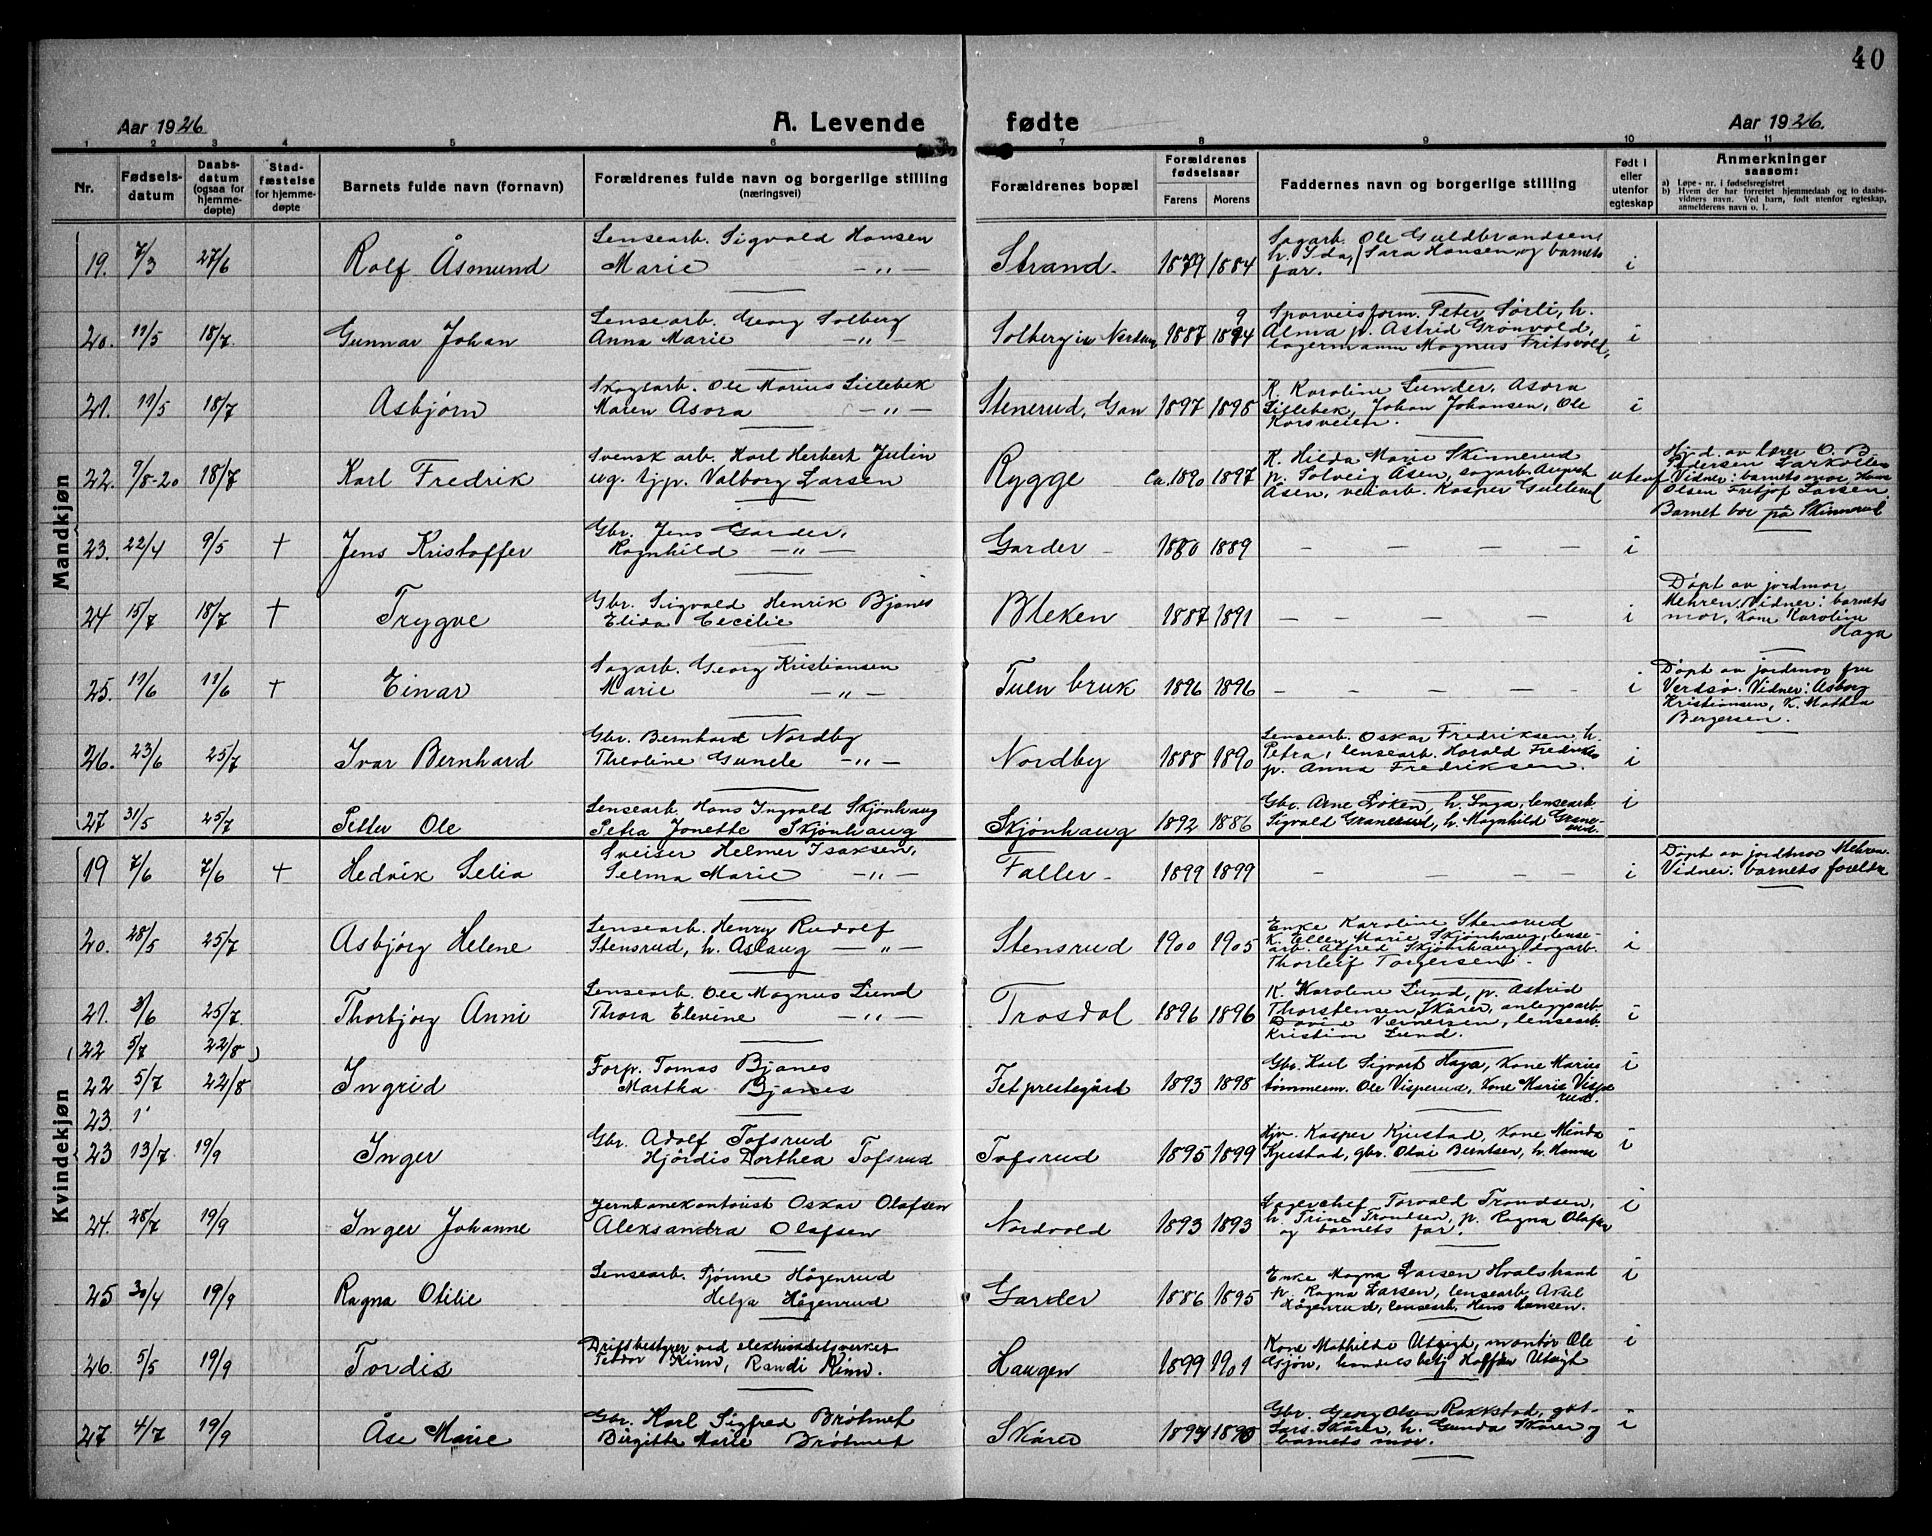 40
Aar 1926
A. Levende
fødte
Aar 1926.
1 2 3 4 5 6 7 8 9 10 11
Nr.
Fødsels-
datum
Daabs-
datum
(ogsaa for
hjemme-
døpte)
Stad-
fæstelse
for hjemme-
døpte
Barnets fulde navn (fornavn)
Forældrenes fulde navn og borgerlige stilling
(næringsvei)
Forældrenes bopæl
Forældrenes
fødselsaar
Farens
Morens
Faddernes navn og borgerlige stilling
Født i
eller
utenfor
egteskap
Anmerkninger
saasom:
a) Løpe-nr. i fødselsregistret
b) Hvem der har forrettet hjemmedaab og to daabs-
vidners navn. Ved barn, født utenfor egteskap,
anmelderens navn o. l.
Mandkjøn
19. 7/3 27/6 Rolf Åsmund
Lensearb. Sigvald Hansen
Marie — „ —
Strand. 1879 1884
Sagarb. Ole Guldbrandsen
h. Ida, Sara Hansen, og barnets
far.
i
20. 11/5 18/7 Gunnar Johan
Lensearb. Georg Solberg
Anna Marie — „ —
Solberg in Nordum 1887 1894
9
Sporveisform. Peter Sørli, h.
Alma, p. Astrid Grønvold,
lagermann Magnus Fritsvold,
i
21. 11/5 18/7 Asbjørn
Skogsarb. Ole Marius Lillebek
Maren Asora — „ —
Stenerud, Gan 1897 1898
K. Karoline Lunder, Asora
Lillebek, Johan Johansen, Ole
Korsveien.
i
22. 9/8-20 18/7 Karl Fredrik
Svensk arb. Karl Herbert Julin
ug. tjp. Valborg Larsen
Rygge Ca. 1890 1897
K. Hilda Marie Skinnerud
p. Solveig Åsen, sagarb. August
Åsen, veiarb. Kasper Gulterud
utenf
Hj.d. av lærer O. B.
Pedersen Larkollen
Vidner: barnets mor, Hans
Olsen Fritjof Larsen.
Barnet bor på Skinnerud
23. 22/4 9/5 + Jens Kristoffer
Gbr. Jens Garder,
Ragnhild — „ —
Garder — 1880 1889
— — — — i
24 15/7 18/7 + Trygve
Gbr. Sigvald Henrik Bjanes
Elida Cecilie
Bleken 1887 1891
— — — — i
Døpt av jordmor
Mehren. Vidner: barnets
mor, Kone Karoline
Haga
25. 11/6 11/6 + Einar
Sagarb. Georg Kristiansen
Marie — „ —
Tuen bruk 1896 1896
— — — — i
Døpt av jordmor fru
Verdsø. Vidner: Asborg
Kristiansen, K. Mathea
Bergersen.
26. 23/6 25/7 Ivar Bernhard
Gbr. Bernhard Nordby
Theoline Gunele — „ —
Nordby 1888 1890
Lensearb. Oskar Fredriksen, h.
Petra, lensearb. Harald Fredriks
p. Anna Fredriksen.
i
27 31/5 25/7 Petter Ole
Lensearb. Hans Ingvald Skjønhaug
Petra Jonette Skjønhaug
Skjønhaug 1892 1886
Gbr. Arne Løken, h. Inga, lensearb.
Sigvald Granerud, h. Magnhild Grane-
rud.
i
Kvindekjøn
19 7/6 7/6 + Hedvik Selia
Sveiser Helmer Isaksen,
Selma Marie — „ —
Faller — 1899 1899
— — — — i
Døpt av jordmor Mehren.
Vidner: barnets foreldre
20. 28/5 25/7 Asbjørg Helene
Lensearb. Henry Rudolf
Stensrud, h. Aslaug — „ —
Stensrud 1900 1905
Enke Karoline Stensrud
K. Elley Marie Skjønhaug, lense-
arb. Alfred Skjønhaug, sagarb.
Thorleif Torgersen.
i
21. 3/6 25/7. Thorbjørg Anni
Lensearb. Ole Magnus Lund
Thora Elevine — „ —
Trosdal 1896 1896
K. Karoline Lund, p. Astrid
Thorstensen, Skårer, anleggsarb.
David Vernersen, lensearb.
Kristian Lund.
i
( 22 5/7 22/8 )
22 5/7 22/8 Ingrid
Forp. Tomas Bjanes
Martha Bjanes
Fet prestegård 1893 1898
Gbr. Karl Sigvart Haga, Kone Marie
tømmerm. Ole Visperud, Kone Maria Visper
rud.
i
23. 1'
23 13/7 19/9 Inger
Gbr. Adolf Tofsrud
Hjørdis Dorthea Tofsrud
Tofsrud 1895 1899
Hjv. Kasper Kjustad, Kone Minda
Kjustad, gbr. Olai Berntsen, h. Hanna
i
24. 28/7 19/9 Inger Johanne
Jernbanekontorist Oskar Olafsen
Aleksandra Olafsen
Nordvold 1893 1893
Lagerchef Torvald Trondsen,
h. Trine Trondsen, p. Ragna Olafsen
og barnets far.
i
25 30/4 19/9 Ragna Otilie
Lensearb. Tjønne Høgenrud
Helga Høgenrud
Garder 1886 1895
Enke Magna Larsen Hvalstrand
p. Ragna Larsen, lensearb. Aksel
Høgenrud, lensearb. Hans Hansen.
i
26. 5/5 19/9 Tordis
Driftbestyrer ved elektrisitetsverket
Teodor Kinn, Randi Kinn.
Haugen 1899 1901
Kone Mathilde Utsigt, montør Ole
Asjøn, handelsbetj Halfdan Utsigt
i
27 4/7 19/9 Åse Marie
Gbr. Karl Sigfred Brøtmet
Birgitte Marie Brøtmet
Skårer 1894 1890
Gbr. Georg Olsen Rakkstad, gbr.
Lars Skårer, h. Gunda Skårer og
barnets mor.
i